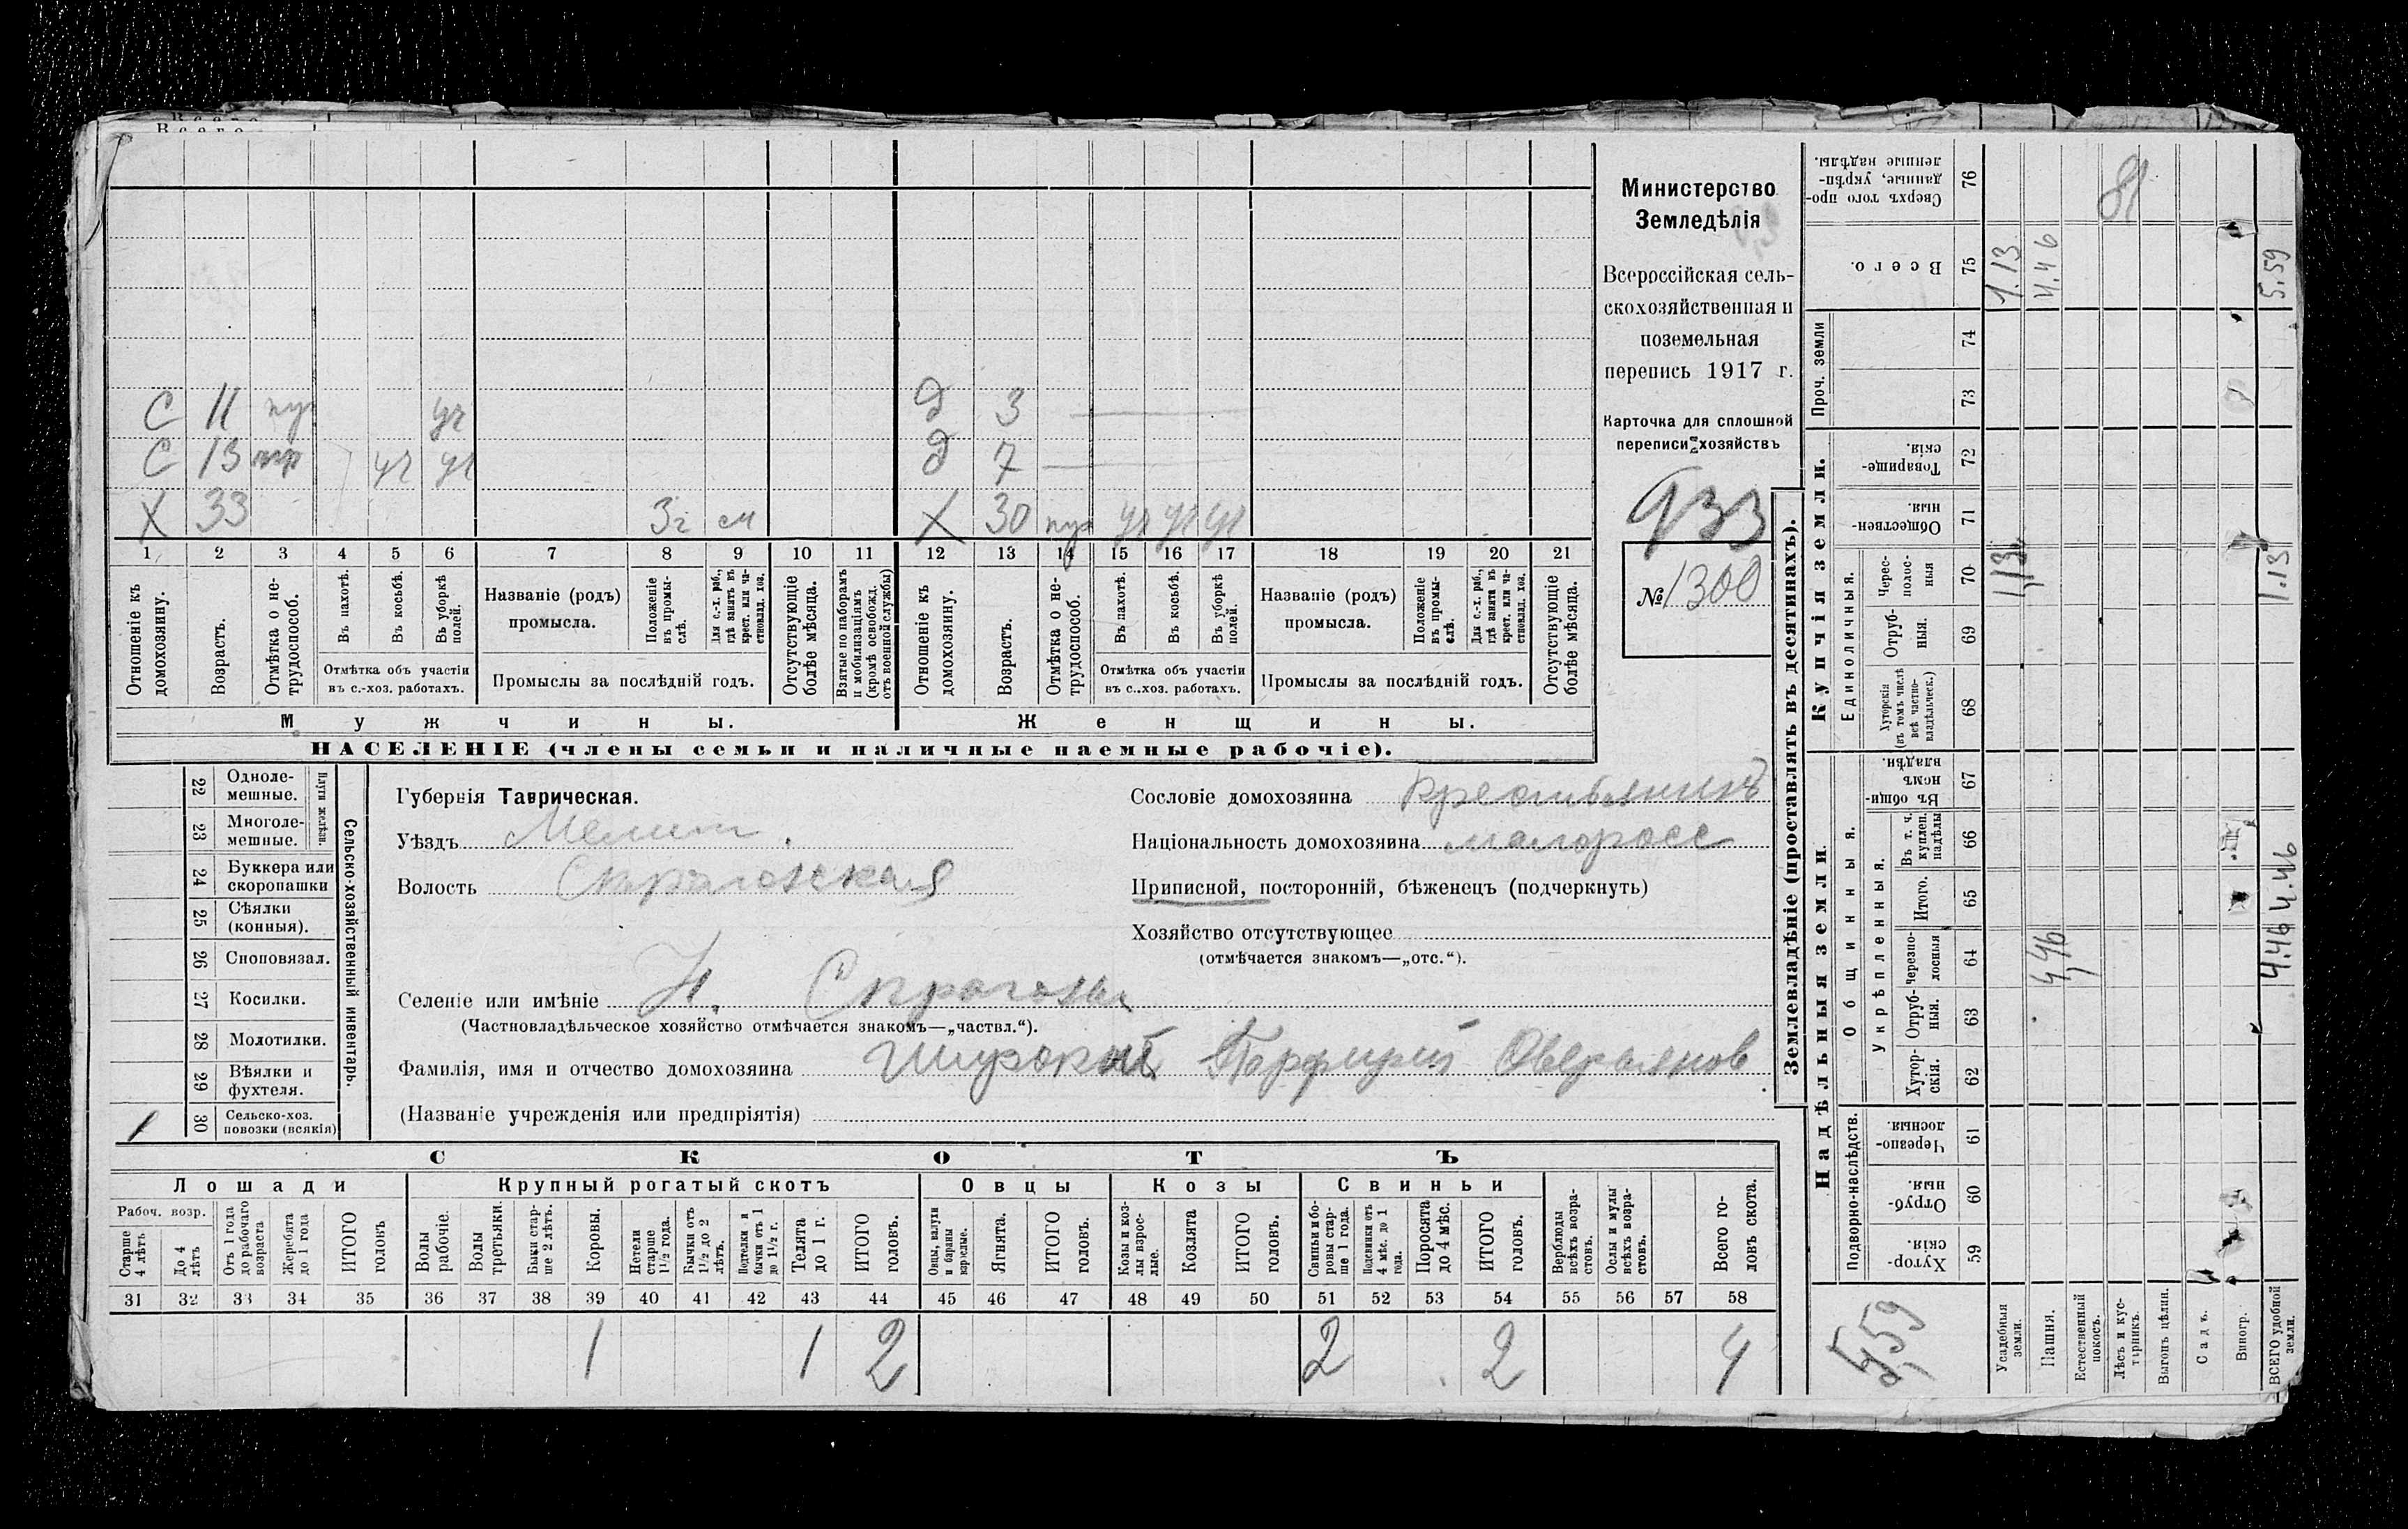 С 11 уч д 3
С 13 уч уч д 7
Х 33 3г см Х 30 уч уч уч
1 2 3 4 5 6 7 8 9 10 11 12 13 14 15 16 17 18 19 20 21
Отношеніе къ домохозяину.
Возрастъ.
Отмѣтка о не-трудоспособ.
Въ пахотѣ.
Въ косьбѣ.
Въ уборкѣ полей.
Отмѣтка объ участіи
въ с.-хоз. работахъ.
Названіе (родъ)
промысла.
Положеніе въ промы-слѣ.
Для с.-х. раб., гдѣ занятъ въ крест. или ча-стновлад. хоз.
Промыслы за послѣдній годъ.
Отсутствующіе болѣе мѣсяца.
Взятые по наборамъ и мобилизаціямъ (кромѣ освобожд. отъ военной службы)
Отношеніе къ домохозяину.
Возрастъ.
Отмѣтка о не-трудоспособ.
Въ пахотѣ.
Въ косьбѣ.
Въ уборкѣ полей.
Отмѣтка объ участіи
въ с.-хоз. работахъ.
Названіе (родъ)
промысла.
Положеніе въ промы-слѣ.
Для с.-х. раб., гдѣ занята въ крест. или ча-стновлад. хоз.
Промыслы за послѣдній годъ.
Отсутствующіе болѣе мѣсяца.
Мужчины. Женщины.
НАСЕЛЕНІЕ (члены семьи и наличные наемные рабочіе).
Министерство
Земледѣлія
Всероссійская сель-
скохозяйственная и
поземельная
перепись 1917 г.
Карточка для сплошной
переписи хозяйствъ
933
№ 1300
Сельско-хозяйственный инвентарь.
Плуги желѣзн.
22 Одноле-
мешные.
23 Многоле-
мешные.
24 Буккера или
скоропашки
25 Сѣялки
(конныя).
26 Сноповязал.
27 Косилки.
28 Молотилки.
29 Вѣялки и
фухтеля.
1 30 Сельско-хоз.
повозки (всякія)
Губернія Таврическая.
Уѣздъ Мелит.
Волость
Селеніе или имѣніе Н.
(Частновладѣльческое хозяйство отмѣчается знакомъ—„частвл.“).
Фамилія, имя и отчество домохозяина Широкий Парфирий
(Названіе учрежденія или предпріятія)
Сословіе домохозяина Крестьянинъ
Національность домохозяина малоросс
Приписной, посторонній, бѣженецъ (подчеркнуть)
Хозяйство отсутствующее
(отмѣчается знакомъ—„отс.“).
СКОТЪ
Лошади Крупный рогатый скотъ Овцы Козы Свиньи
Рабоч. возр.
Старше 4 лѣтъ
До 4 лѣтъ
Отъ 1 года до рабочаго возраста
Жеребята до 1 года
ИТОГО головъ
Волы рабочіе.
Волы третьяки.
Быки стар-ше 2 лѣтъ.
Коровы.
Нетели старше 1½ года.
Бычки отъ 1½ до 2 лѣтъ.
Подтелки и бычки отъ 1 до 1½ г.
Телята до 1 г.
ИТОГО головъ.
Овцы, валухи и бараны взрослые.
Ягнята.
ИТОГО головъ.
Козы и коз-лы взрос-лые.
Козлята
ИТОГО головъ.
Свиньи и бо-ровы стар-ше 1 года.
Подсвинки отъ 4 мѣс. до 1 года.
Поросята до 4 мѣс.
ИТОГО головъ.
Верблюды всѣхъ возра-стовъ.
Ослы и мулы всѣхъ возра-стовъ.
Всего го-ловъ скота.
31 32 33 34 35 36 37 38 39 40 41 42 43 44 45 46 47 48 49 50 51 52 53 54 55 56 57 58
1 1 2 2 2 4
Землевладѣніе (проставлять въ десятинахъ).
Надѣльныя земли. Купчія земли.
Подворно-наслѣдств. Общинныя. Единоличныя. Проч. земли
Укрѣпленныя.
59 Хутор-скія.
60 Отруб-ныя.
61 Черезпо-лосныя.
62 Хутор-скія.
63 Отруб-ныя.
64 Черезпо-лосныя
65 Итого.
66 Въ т. ч. куплен. надѣлы
67 Въ общи-номъ владѣн.
68 Хуторскія (въ томъ числѣ всѣ частно-владѣльческ.)
69 Отруб-ныя.
70 Черес-полос-ныя
71 Обществен-ныя.
72 Товарище-скія.
73
74
75 Всего.
76 Сверхъ того про-данные, укрѣп-ленные надѣлы.
5,59
Усадебныя земли. 1,13 1.13
Пашня. 4,46 4.46
Естественный покосъ.
Лѣсъ и кус-тарникъ.
Выгонъ цѣлин.
Садъ.
Виногр.
ВСЕГО удобной земли. 4.46 4.46 1.13 5.59
81